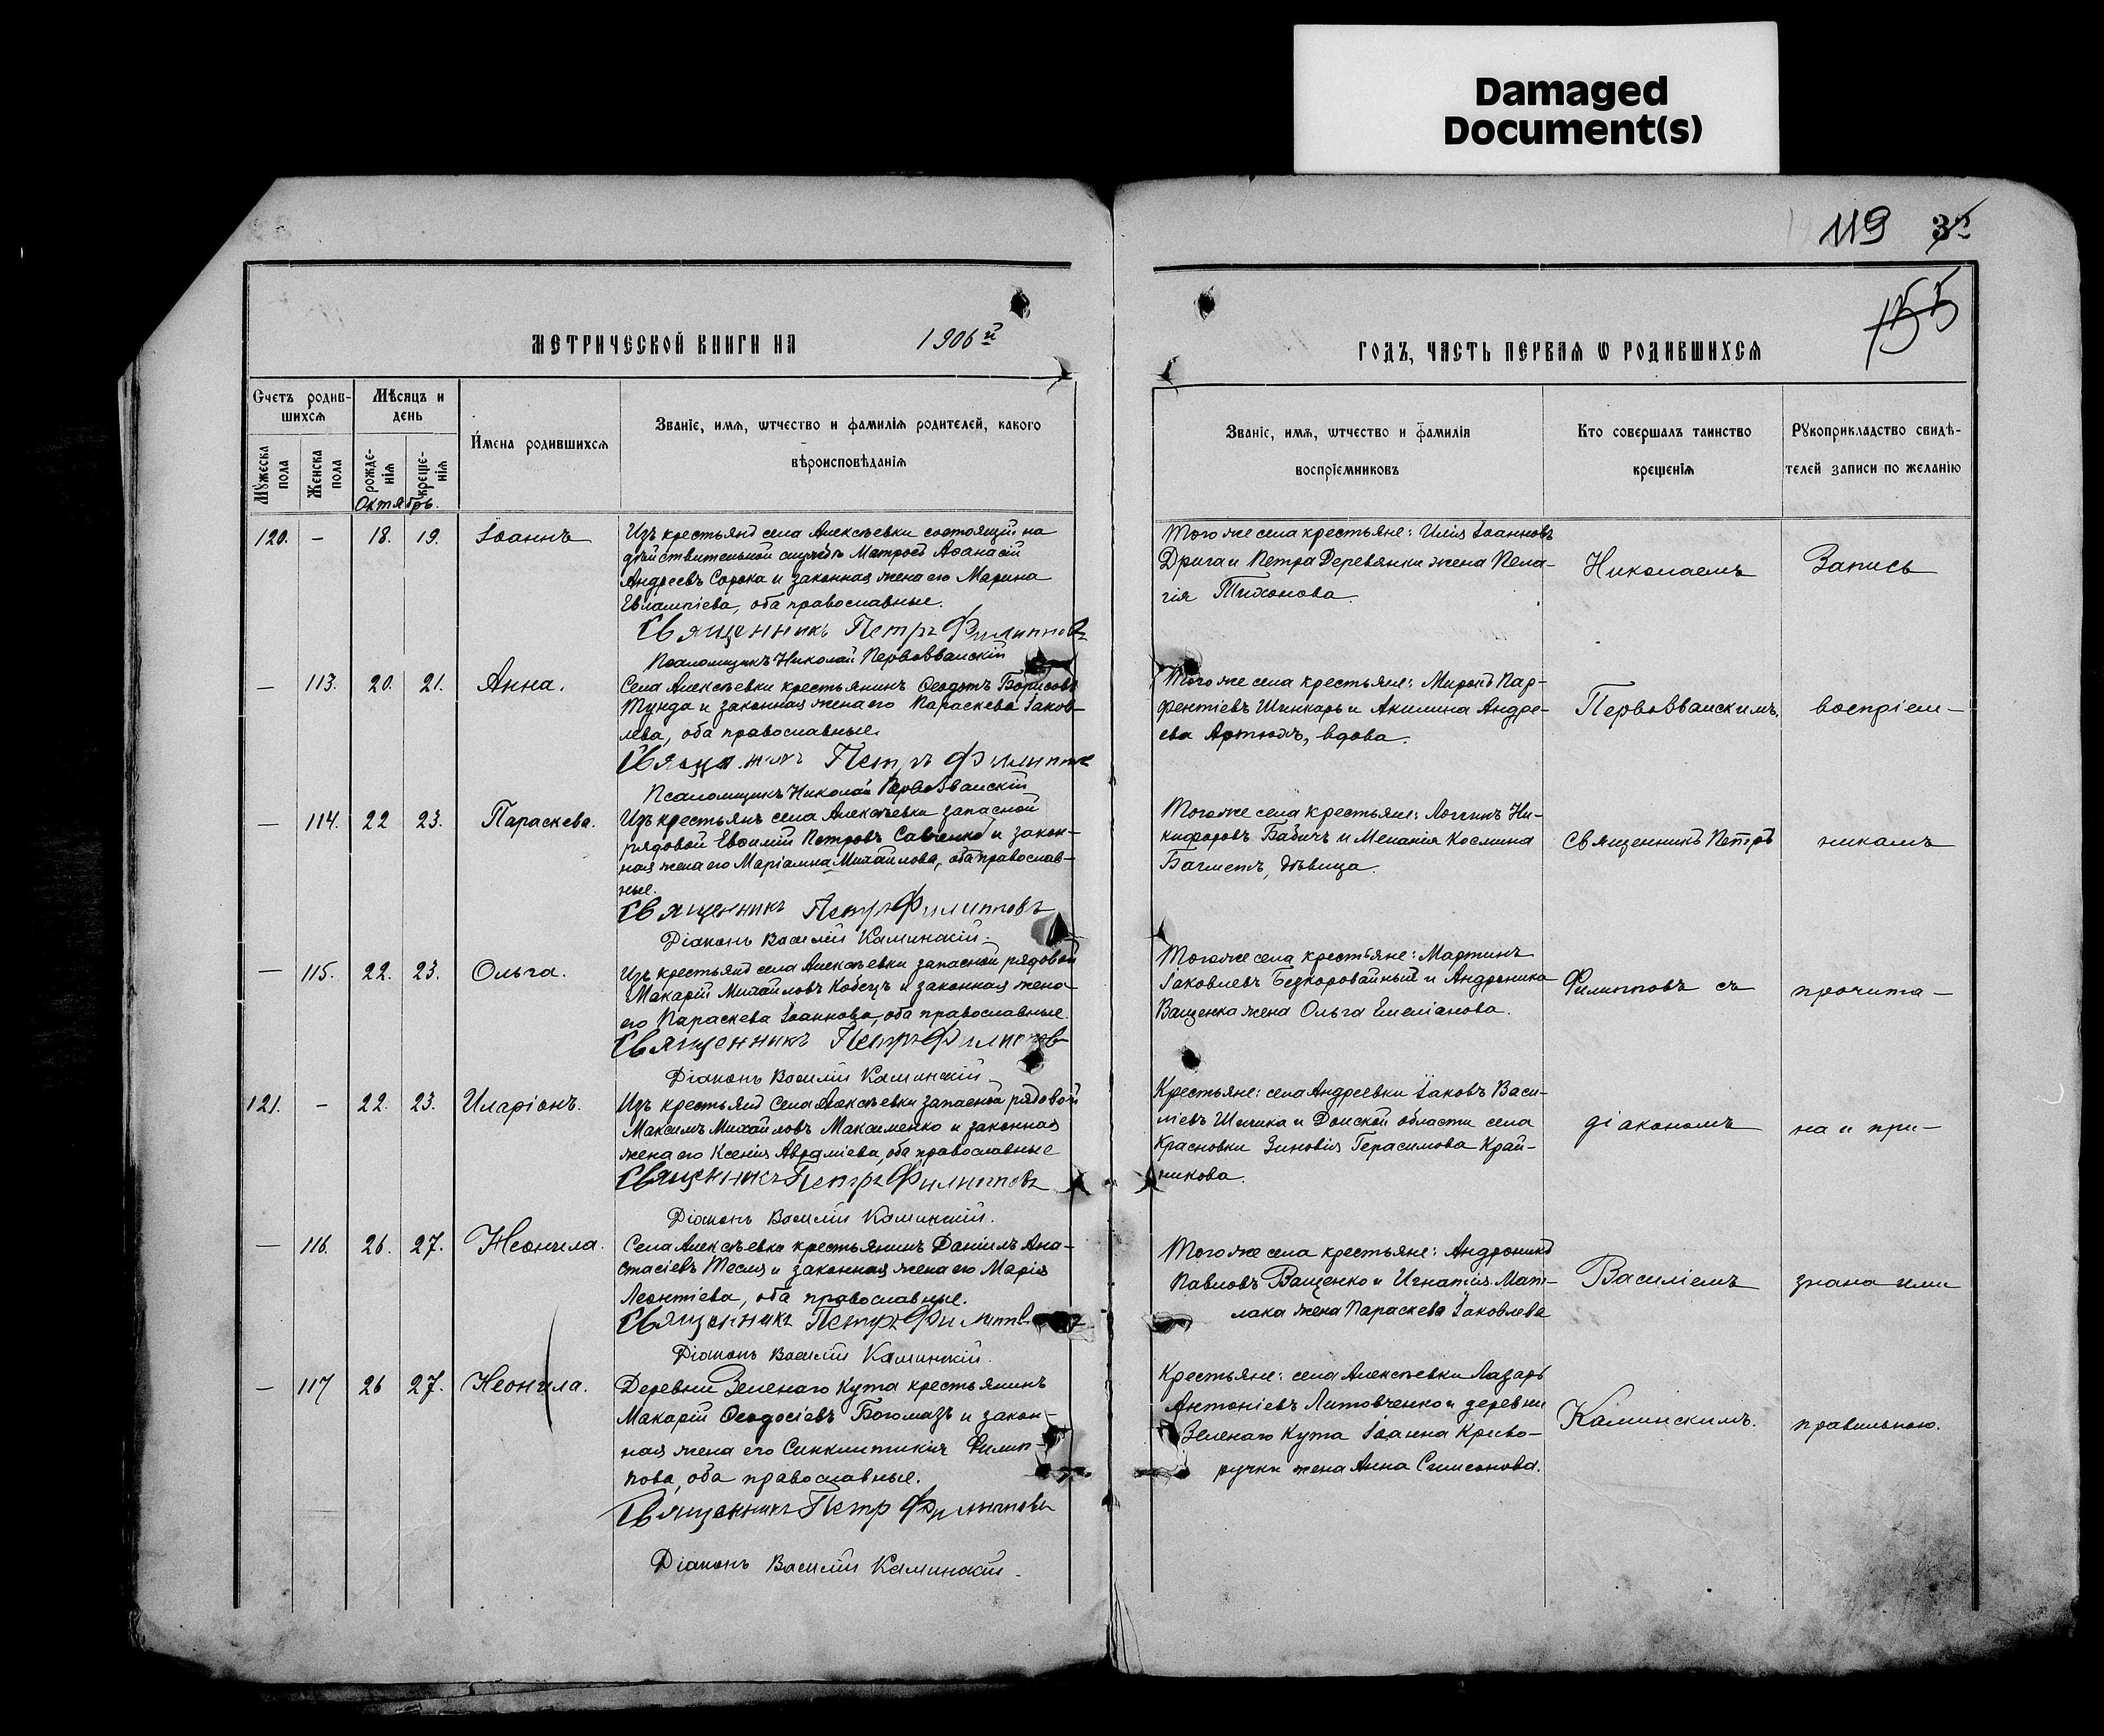 Damaged
Document(s)
119
155
МЕТРИЧЕСКОЙ КНИГИ НА 1906й
ГОДЪ, ЧАСТЬ ПЕРВАѦ Ѡ РОДИВШИХСѦ
Счетъ родив-
шихсѧ
Мѣсяцъ и
день
Имена родившихсѧ
Званіе, имѧ, ѡтчество и фамилїѧ родителей, какого
вѣроисповѣданїѧ
Мꙋжеска пола
Женска пола
рожде-
нїѧ
креще-
нїѧ
Октябрь.
Званіе, имѧ, ѡтчество и фамилїѧ
воспрїемниковъ
Кто совершалъ таинство
крещенїѧ
Рꙋкоприкладство свидѣ-
телей записи по желанію
120. - 18. 19. Іоаннъ
Изъ крестьянъ села Алексѣевки состоящій на
дѣйствительной службѣ Матросъ Аѳанасій
Андреевъ Сорока и законная жена его Марина
Евлампіева, оба православные.
Священникъ Петръ Филипповъ
Псаломщикъ Николай Первозванскій
Того же села крестьяне: Илія Іоанновъ
Дрига и Петра Деревянки жена Пела-
гія Тихонова.
Николаемъ
Запись
— 113. 20. 21. Анна.
Села Алексѣевки крестьянинъ Ѳеодотъ Борисовъ
Тунда и законная жена его Параскева Іаков-
лева, оба православные.
Священникъ Петръ Филиппов
Псаломщикъ Николай Первозванскій
Того же села крестьяне: Миронъ Пар-
фентіевъ Шинкарь и Акилина Андре-
ева Артюхъ, вдова.
Первозванскимъ,
воспріем-
— 114. 22 23. Параскева.
Изъ крестьянъ села Алексѣевки запасной
рядовой Евѳимій Петровъ Савченко и закон-
ная жена его Маріамна Михайлова, оба православ-
ные.
Священникъ Петръ Филипповъ
Діаконъ Василій Каминскій.
Того же села крестьяне: Логгинъ Ни-
кифоровъ Бабичъ и Меланія Космина
Багметъ, дѣвица.
Священникъ Петръ
никамъ
— 115. 22. 23. Ольга.
Изъ крестьянъ села Алексѣевки запасной рядовой
Макарій Михайловъ Кобецъ и законная жена
его Параскева Іоаннова, оба православные.
Священникъ Петръ Филиппов
Діаконъ Василій Каминскій
Того же села крестьяне: Мартинъ
Іаковлевъ Безкоровайный и Андроника
Ващенка жена Ольга Емеліанова.
Филипповъ съ
прочита-
121. - 22. 23. Иларіонъ.
Изъ крестьянъ Села Алексѣевки запасной рядовой
Максимъ Михайловъ Максименко и законная
жена его Ксенія Авраміева, оба православные
Священникъ Петръ Филипповъ
Діаконъ Василій Каминскій.
Крестьяне: села Андреевки Іаковъ Васи-
ліевъ и Донской области села
Красновки Зиновія Герасимова Край-
никова.
діакономъ
на и при-
— 116. 26. 27. Неонила.
Села Алексѣевки крестьянинъ Даніилъ Ана-
стасіевъ Тесля и законная жена его Марія
Леонтіева, оба православные.
Священникъ Петръ Филиппов
Діаконъ Василій Каминскій.
Того же села крестьяне: Андроникъ
Павловъ Ващенко и Игнатія Мат-
лака жена Параскева Іаковлева
Василіемъ
знана ими
— 117 26 27. Неонила.
Деревни Зеленаго Кута крестьянинъ
Макарій Ѳеодосіевъ Богомазъ и закон-
ная жена его Синклитикія Филип-
пова, оба православные.
Священникъ Петр Филиппов
Діаконъ Василій Каминскій.
Крестьяне: села Алексѣевки Лазарь
Антоніевъ Литовченко и деревни
Зеленаго Кута Іоанна Криво-
ручки жена Анна Симеонова.
Каминскимъ.
правильною.